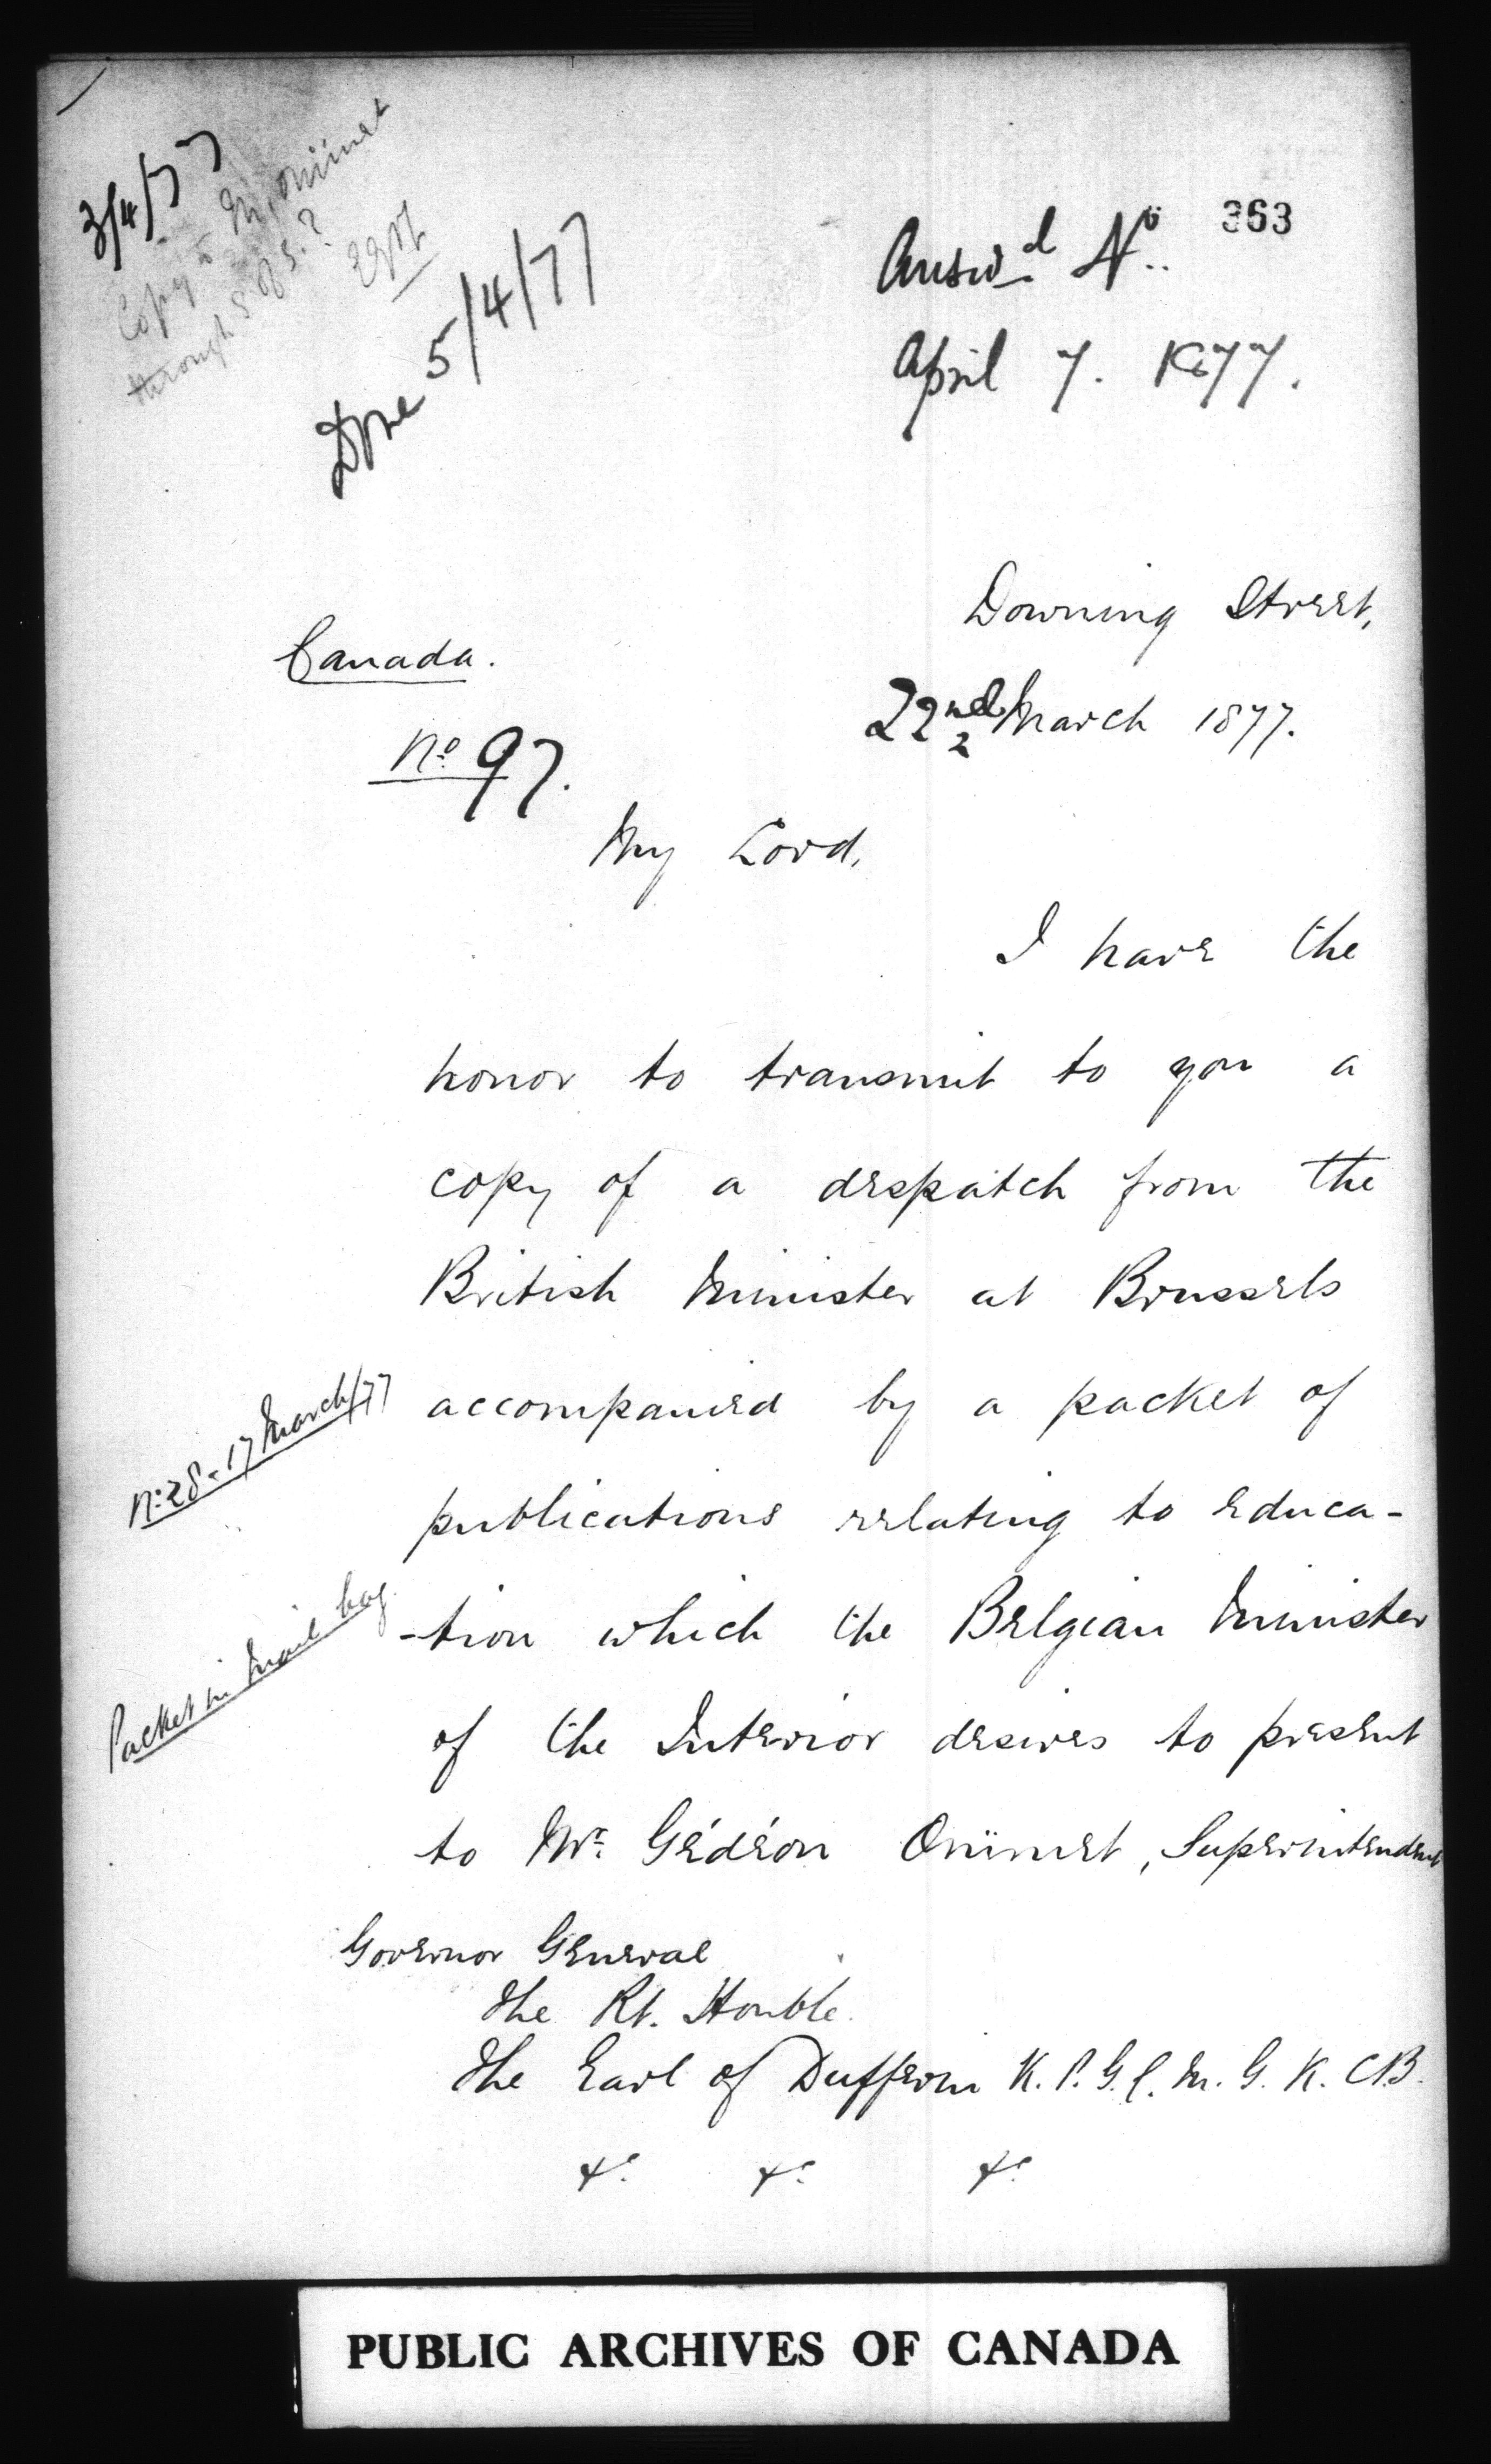 3/4/77
Copy to Mr. Oüimet
through S of S.?
Done 5/4/77
363
Answd No..
April 7. 1877.
Downing Street,
Canada.
22nd March 1877.
2
No. 97.
My Lord,
I have the
honor to transmit to you a
copy of a despatch from the
British Minister at Brussels
No. 28 - 17 March/77
accompanied by a packet of
publications relating to educa-
Packet in Mail bag.
-tion which the Belgian Minister
of the Interior desires to present
to Mr. Gédéon Oüimet, Superintendent
Governor General
The Rt. Honble.
The Earl of Dufferin K. P. G. C. M. G. K. C B.
&c. &c. &c.
PUBLIC ARCHIVES OF CANADA